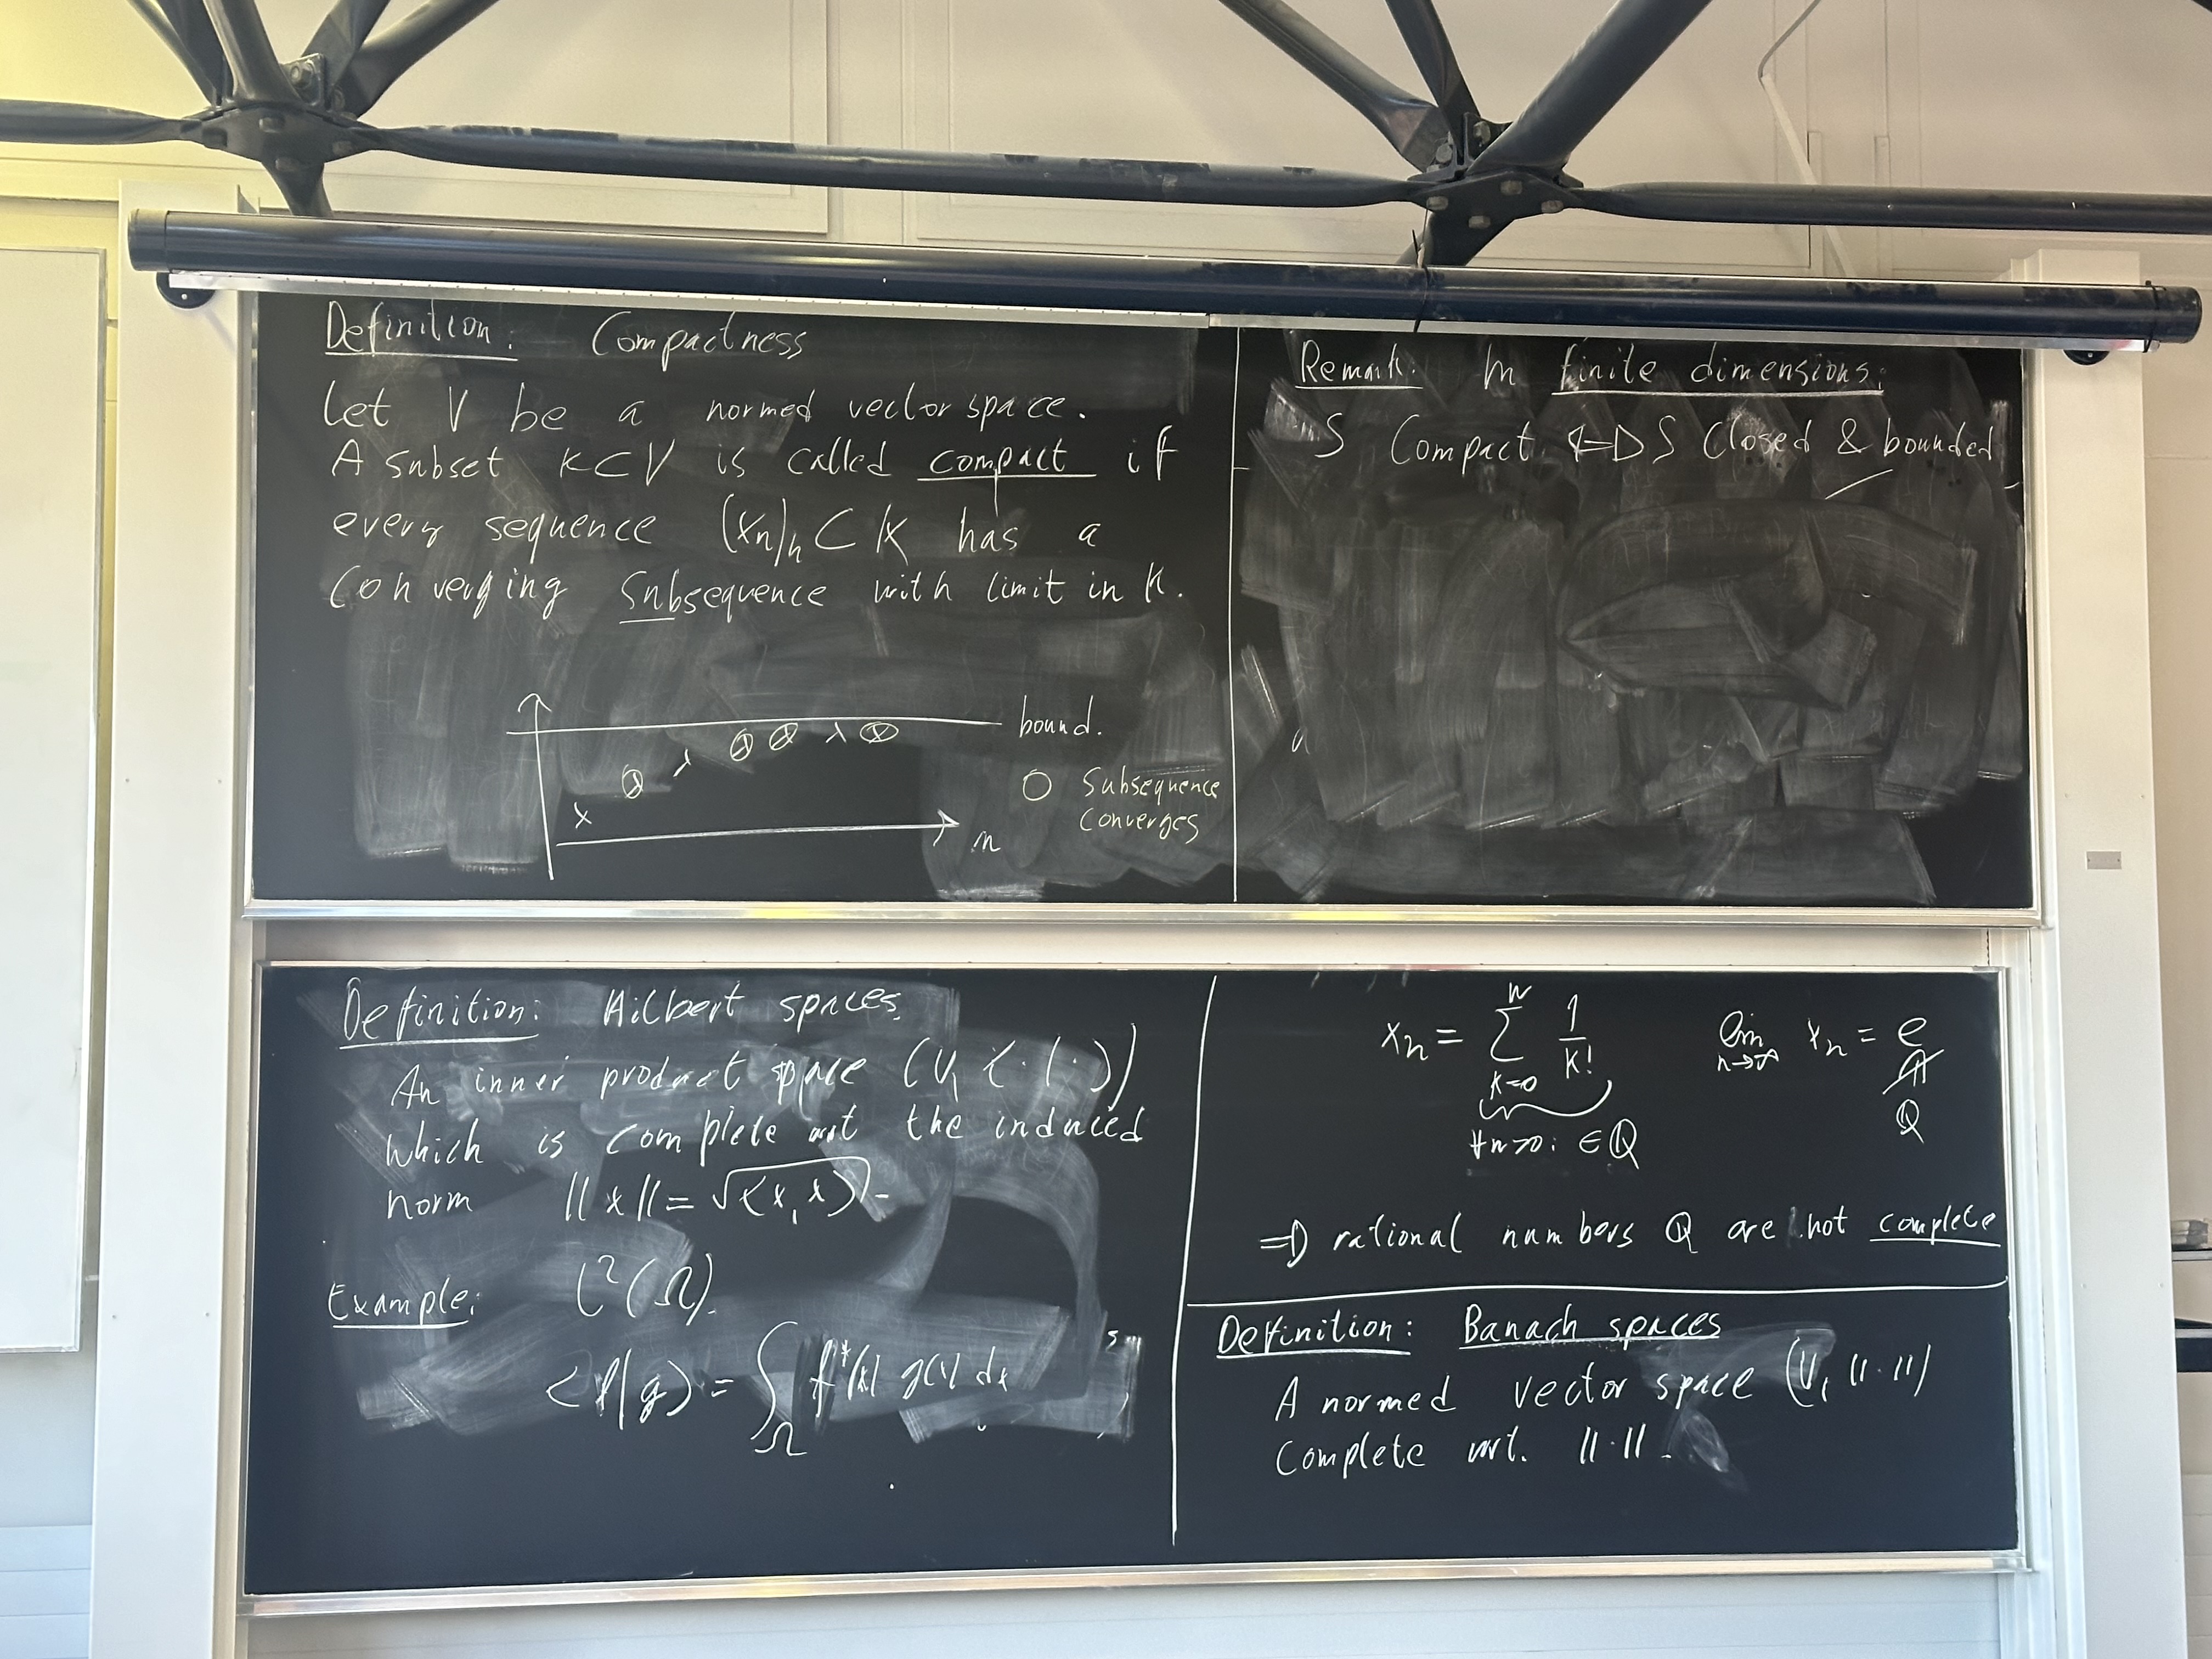 Definition: Compactness
Let V be a normed vector space.
A subset K⊂V is called compact if
every sequence (xn)n ⊂ K has a
converging subsequence with limit in K.
bound.
○ Subsequence
converges
n
Remark: In finite dimensions:
S Compact ⇔ S Closed & bounded
Definition: Hilbert spaces.
An inner product space (V, ⟨·|·⟩)
which is complete wrt the induced
norm ||x|| = √⟨x,x⟩.
Example: L²(Ω).
⟨f|g⟩ = ∫Ω f*(x) g(x) dx
xn = ∑ₖ₌₀ⁿ 1/k! lim n→∞ xn = e
∀n>0: ∈ ℚ ∉ ℚ
⇒ rational numbers ℚ are not complete
Definition: Banach spaces
A normed vector space (V, ||·||)
Complete wrt. ||·||.